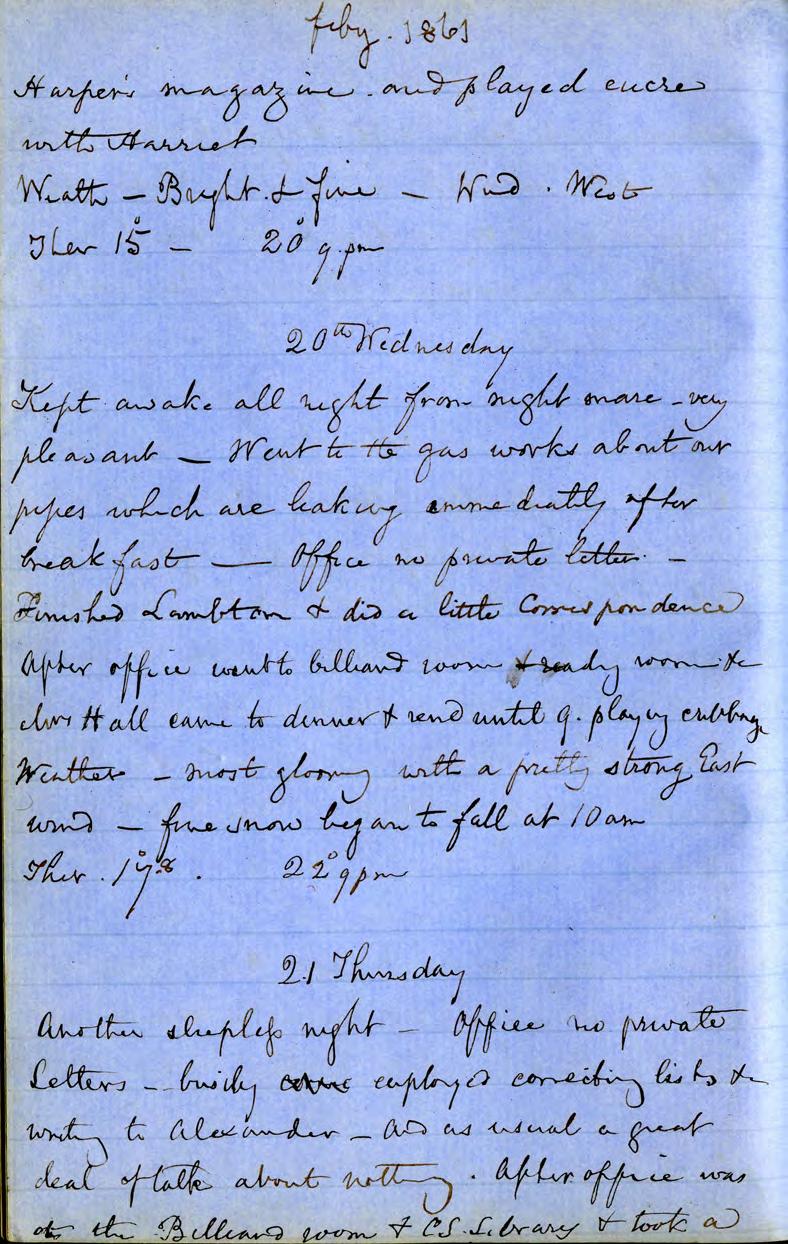 feby. 1861
Harper's magazine. and played eucre
with Harriet
Weath — Bright & fine — Wind. West
Ther 15° — 20° 9.pm
20th Wednesday
Kept awake all night from night mare - very
pleasant — Went to the gas works about our
pipes which are leaking immediatly after
breakfast — Office no private letter —
Finished Lambton & did a little Correspondence
After office went to billiard room & ready room &c
Hall came to dinner & until 9. playing cribbage
Weather — most gloomy with a pretty strong East
wind — fine snow began to fall at 10 am
Ther. 17°.8. 22° 9 pm
21 Thursday
Another sleepless night — Office no private
Letters — busily employed correcting lists &
writing to Alexander — and as usual a great
deal of talk about nothing. After office was
at the Billiard room & C.S. Library & took a